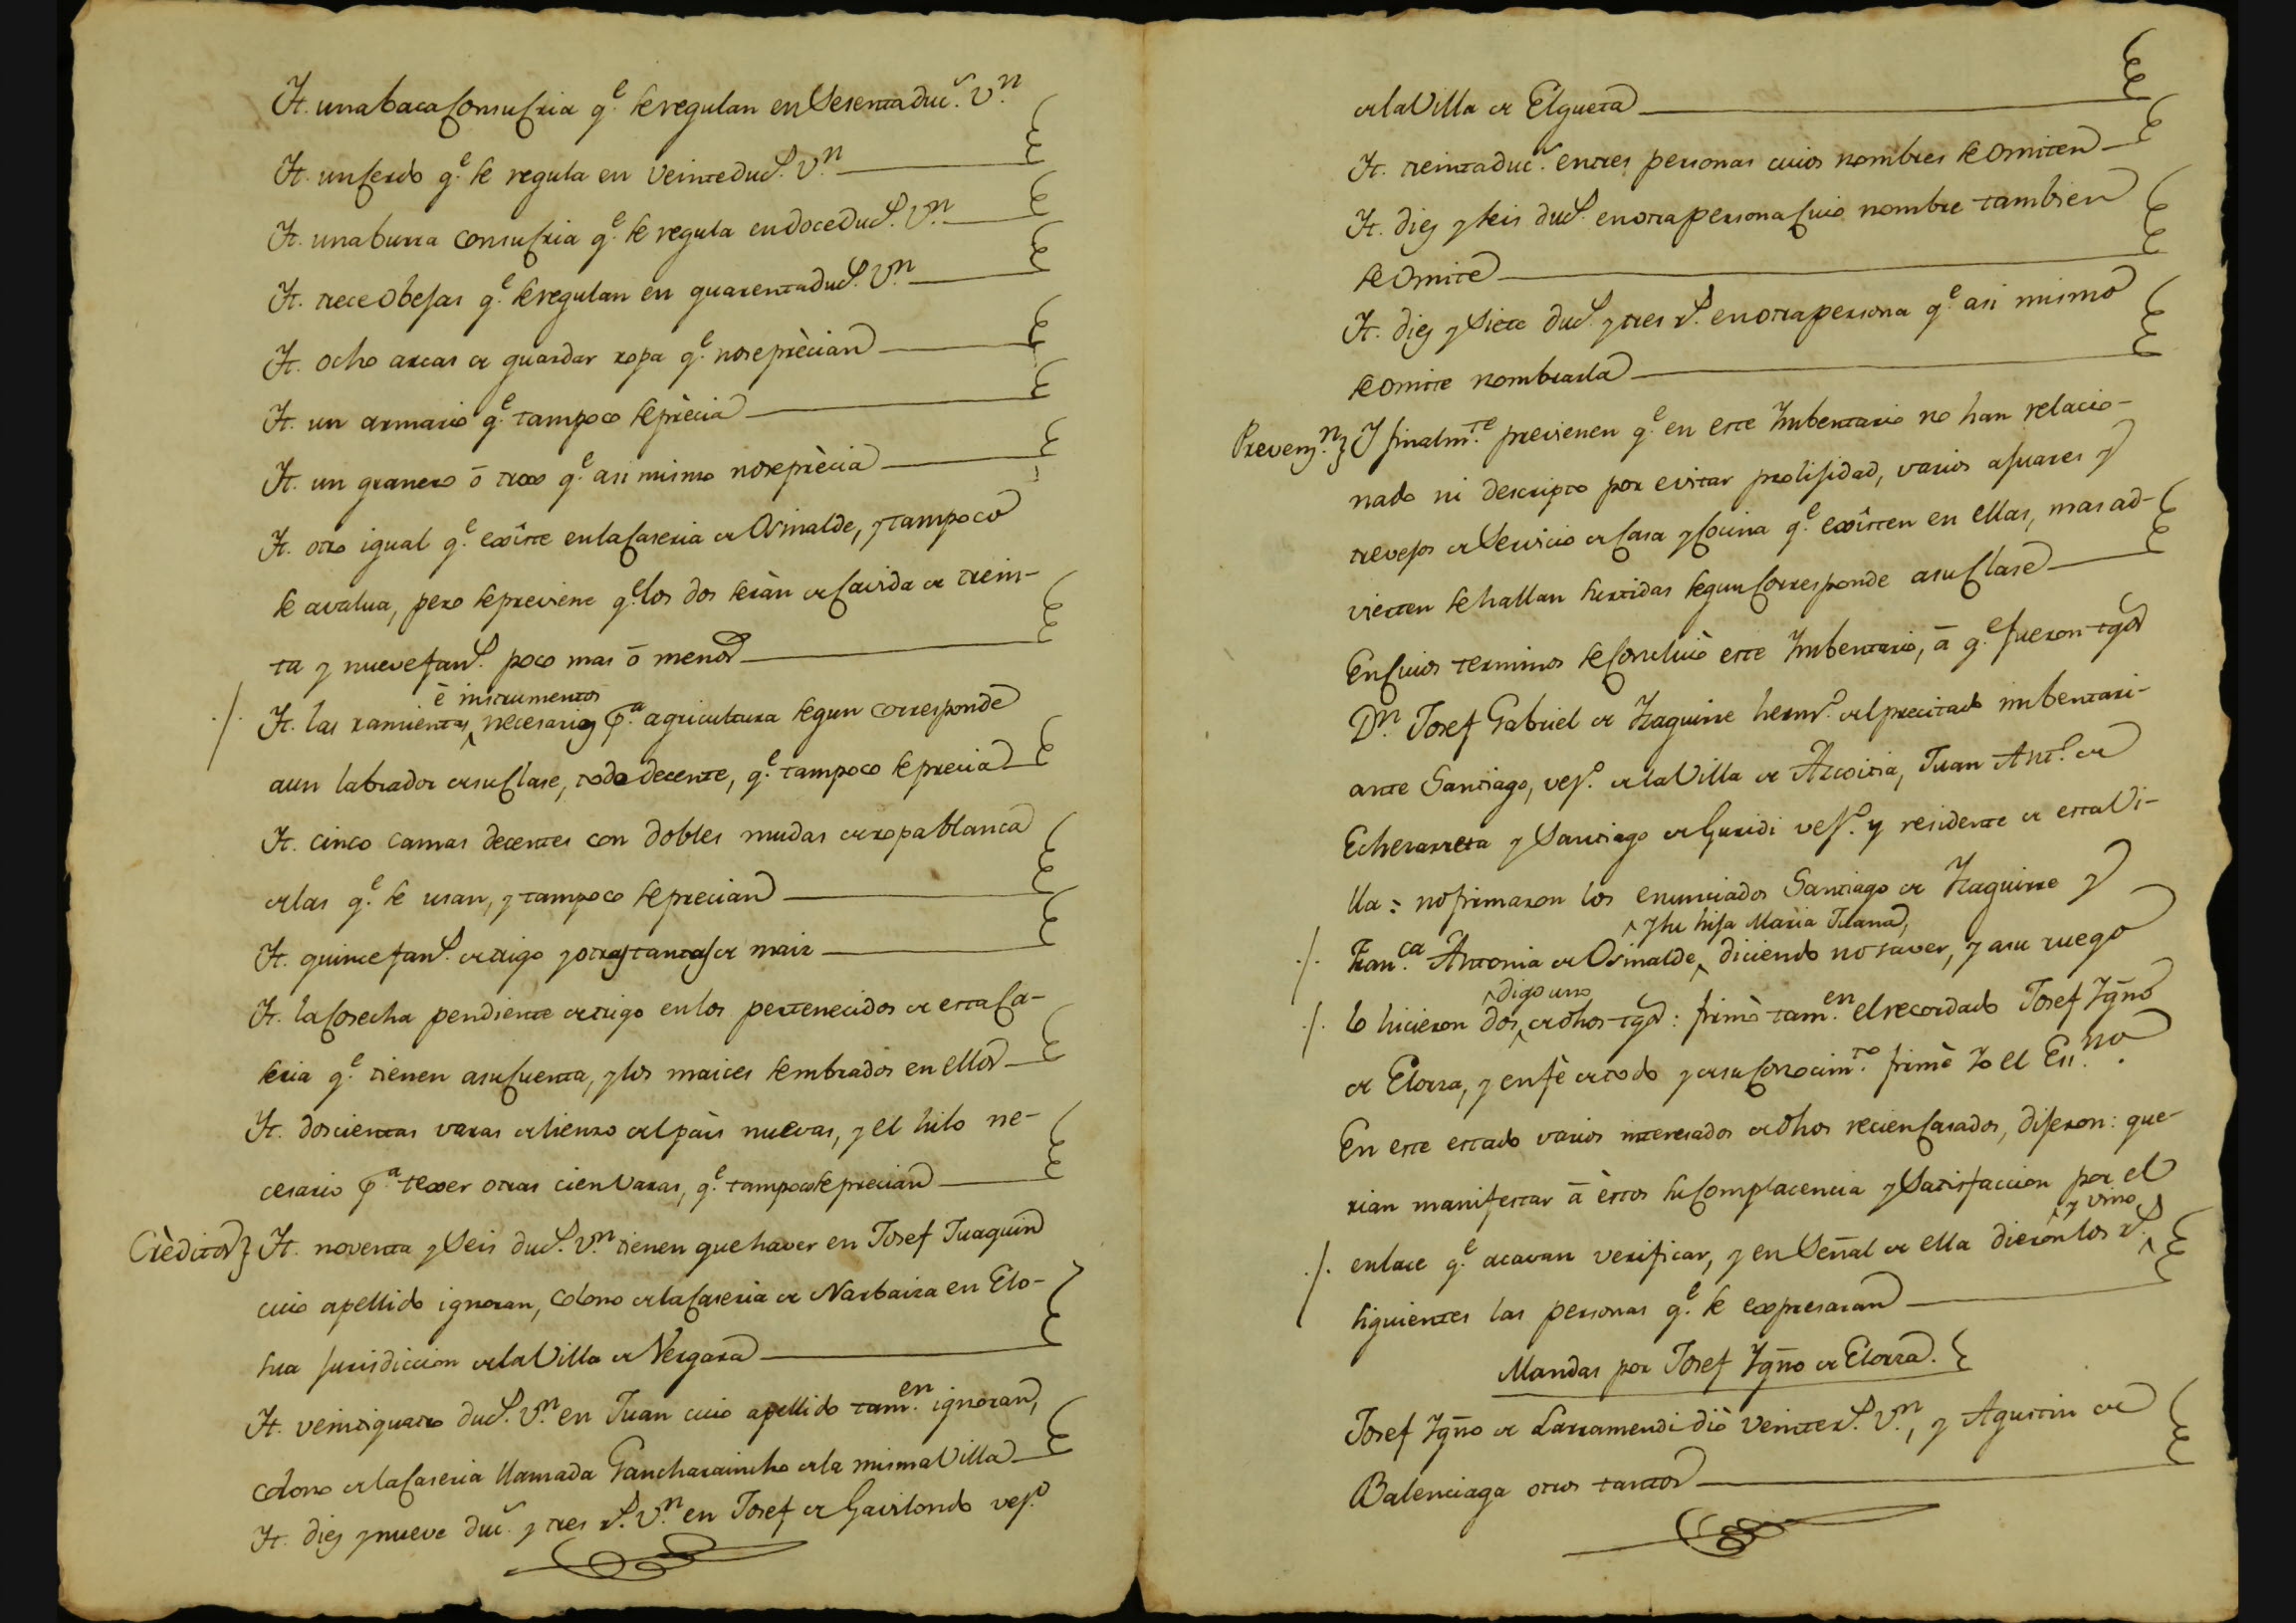 It. una baca con su cria q.e se regulan en sesenta duc.s v.n
It. un cerdo q.e se regula en veinte duc.s v.n
It. una burra con su cria q.e se regula en doce duc.s v.n
It. trece obejas q.e se regulan en quarenta duc.s v.n
It. ocho arcas de guardar ropa q.e no se prècian
It. un armario q.e tampoco se prècia
It. un granero ō troxe q.e asi mismo no se prècia
It. otro igual q.e exîste en la caseria de Osinalde, y tampoco
se avalua, pero se previene q.e los dos seràn de cavida de trein-
ta y nueve fan.s poco mas ō menos
è instrumentos
It. las ramientas necesarias p.a agricultura segun corresponde
a un labrador de su clase, todo decente, q.e tampoco se precia
It. cinco camas decentes con dobles mudas de ropa blanca
de las q.e se usan, y tampoco se precian
It. quince fan.s de trigo y otras tantas de maiz
It. la cosecha pendiente de trigo en los pertenecidos de esta Ca-
seria q.e tienen a su cuenta, y los maices sembrados en ellos
It. doscientas varas de lienzo del paìs nuevas, y el hilo ne-
cesario p.a texer otras cien varas, q.e tampoco se precian
Crèditos It. noventa y seis duc.s v.n tienen que haver en Josef Juaquin
cuio apellido ignoran, colono de la caseria de Narbaiza en Elo-
sua jurisdiccion de la Villa de Vergara
It. veintiquatro duc.s v.n en Juan cuio apellido tam.en ignoran,
colono de la caseria llamada Gancharaincho de la misma Villa
It. diez y nueve duc.s y tres r.s v.n en Josef de Gavilondo vez.o
de la Villa de Elgueta
It. treinta duc.s en tres personas cuios nombres se omiten
It. diez y seis duc.s en otra persona cuio nombre tambien
se omite
It. diez y siete duc.s y tres r.s en otra persona q.e asi mismo
se omite nombrarla
Prevenz.n Y finalm.te previenen q.e en este Imbentario no han relacio-
nado ni descripto por evitar prolijidad, varios ajuares y
trevejos de servicio de casa y cocina q.e exîsten en ellas, mas ad-
vierten se hallan surtidas segun corresponde a su clase
En cuios terminos se concluiò este Imbentario, ā q.e fueron tgos
D.n Josef Gabriel de Izaguirre herm.o del precitado imbentari-
ante Santiago, vez.o de la Villa de Azcoitia, Juan Ant.o de
Echezarreta y Santiago de Guridi vez.o y residente de esta Vi-
lla: no firmaron los enunciados Santiago de Izaguirre y
y su hija Marìa Juana,
Fran.ca Antonia de Osinalde, diciendo no saver, y a su ruego
digo uno
lo hicieron dos de dhos tgos: firmò tam.en el recordado Josef Igño
de Elorza, y en fè de todo y de su conocim.to firmè Yo el Ess.no
En este estado varios interesados de dhos recien casados, dijeron: que-
rian manifestar ā èstos su complacencia y satisfaccion por el
y vino
enlace q.e acavan verificar, y en señal de ella dieron los r.s
siguientes las personas q.e se expresaran
Mandas por Josef Igño de Elorza.
Josef Igño de Larramendi diò veinte r.s v.n, y Agustin de
Balenciaga otros tantos